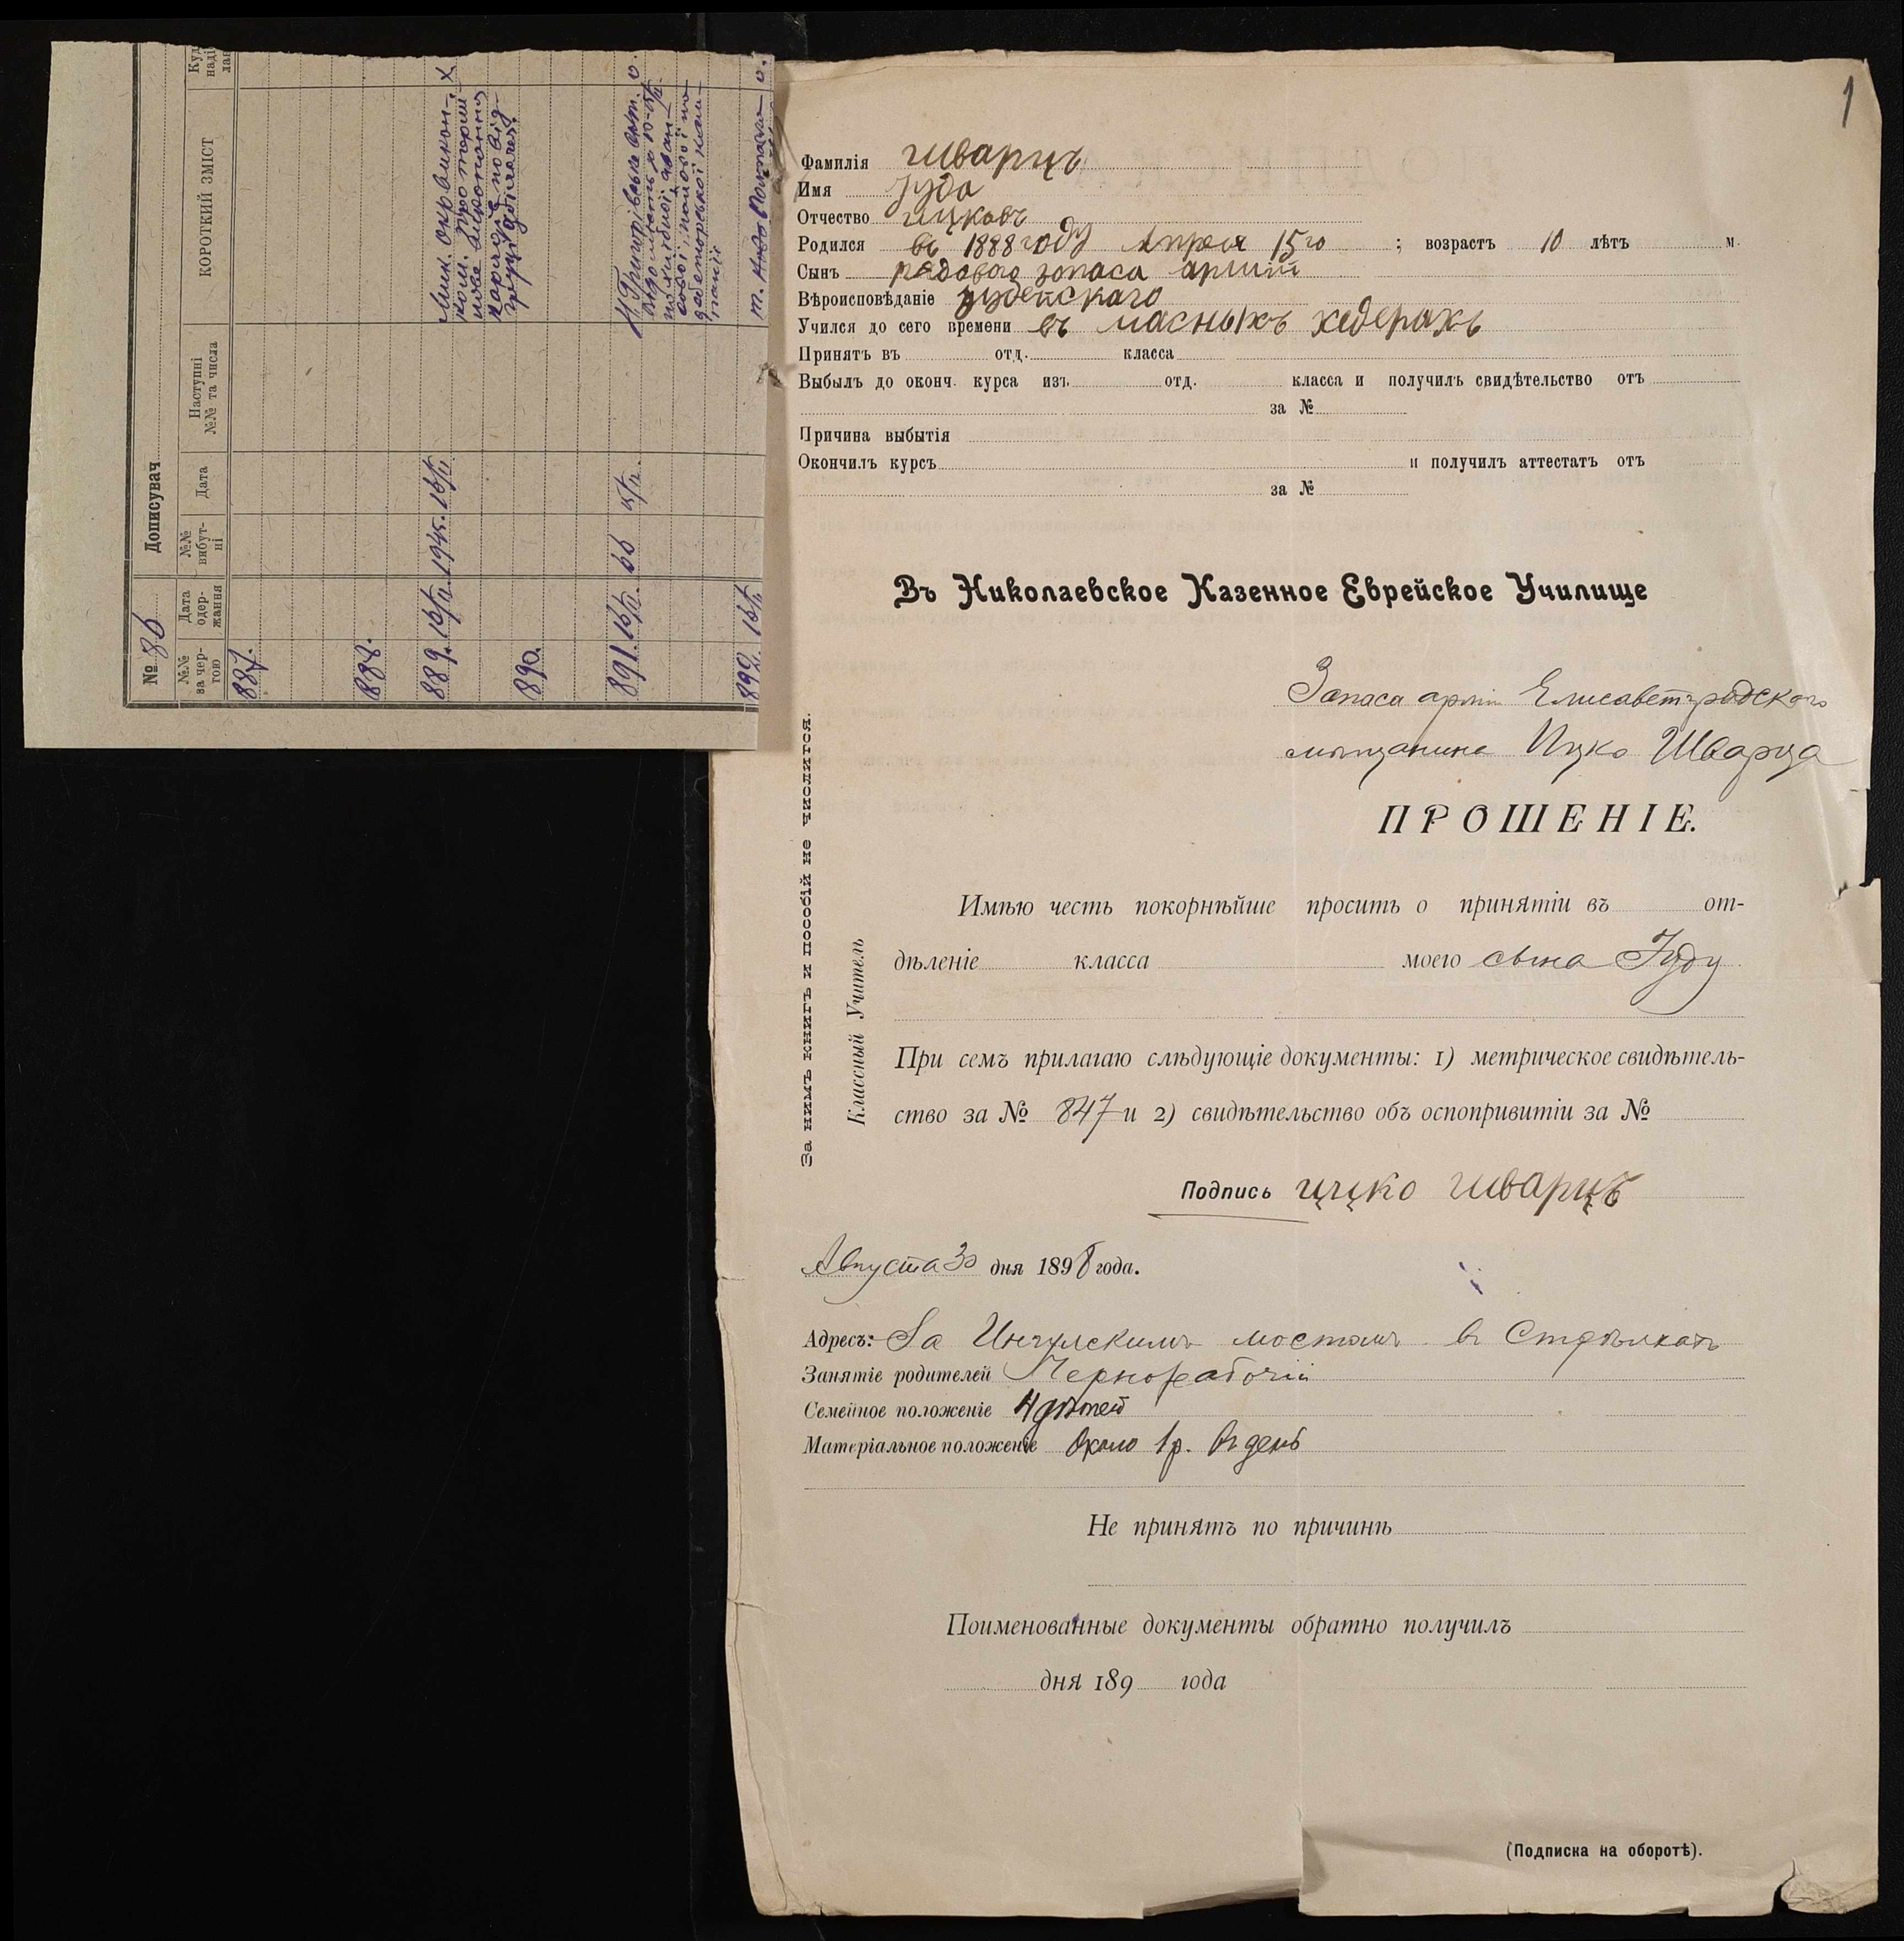 № 86 Дописувач
№№ за чер-тою
Дата одер-жання
№№ вибут-ні
Дата
Наступні №№ та числа
КОРОТКИЙ ЗМІСТ
887.
888.
889. 16/II. 1945. 16/II.
890.
891. 16/II. 66 15/II.
892. 16/II
1
Фамилія Шварцъ
Имя Іуда
Отчество Ицковъ
Родился въ 1888 году Апреля 15го ; возрастъ 10 лѣтъ м.
Сынъ рядового запаса арміи
Вѣроисповѣданіе іудейскаго
Учился до сего времени въ часныхъ хедерахъ
Принятъ въ отд. класса
Выбылъ до оконч. курса изъ отд. класса и получилъ свидѣтельство отъ
за №
Причина выбытія
Окончилъ курсъ и получилъ аттестатъ отъ
за №
Въ Николаевское Казенное Еврейское Училище
Запаса арміи Елисаветградскаго
мѣщанина Ицко Шварца
ПРОШЕНІЕ.
Имѣю честь покорнѣйше просить о принятіи въ от-
дѣленіе класса моего сына Іуду
При семъ прилагаю слѣдующіе документы: 1) метрическое свидѣтель-
ство за № 847 и 2) свидѣтельство объ оспопривитіи за №
Подпись ицко шварцъ
За нимъ книгъ и пособій не числится.
Классный Учитель
Августа 30 дня 1898 года.
Адресъ: За Ингулскимъ мостомъ въ Стрѣлкахъ
Занятіе родителей Чернорабочій
Семейное положеніе 4 дѣтей
Матеріальное положеніе Около 1 р. въ день
Не принятъ по причинѣ
Поименованные документы обратно получилъ
дня 189 года
(Подписка на оборотѣ).